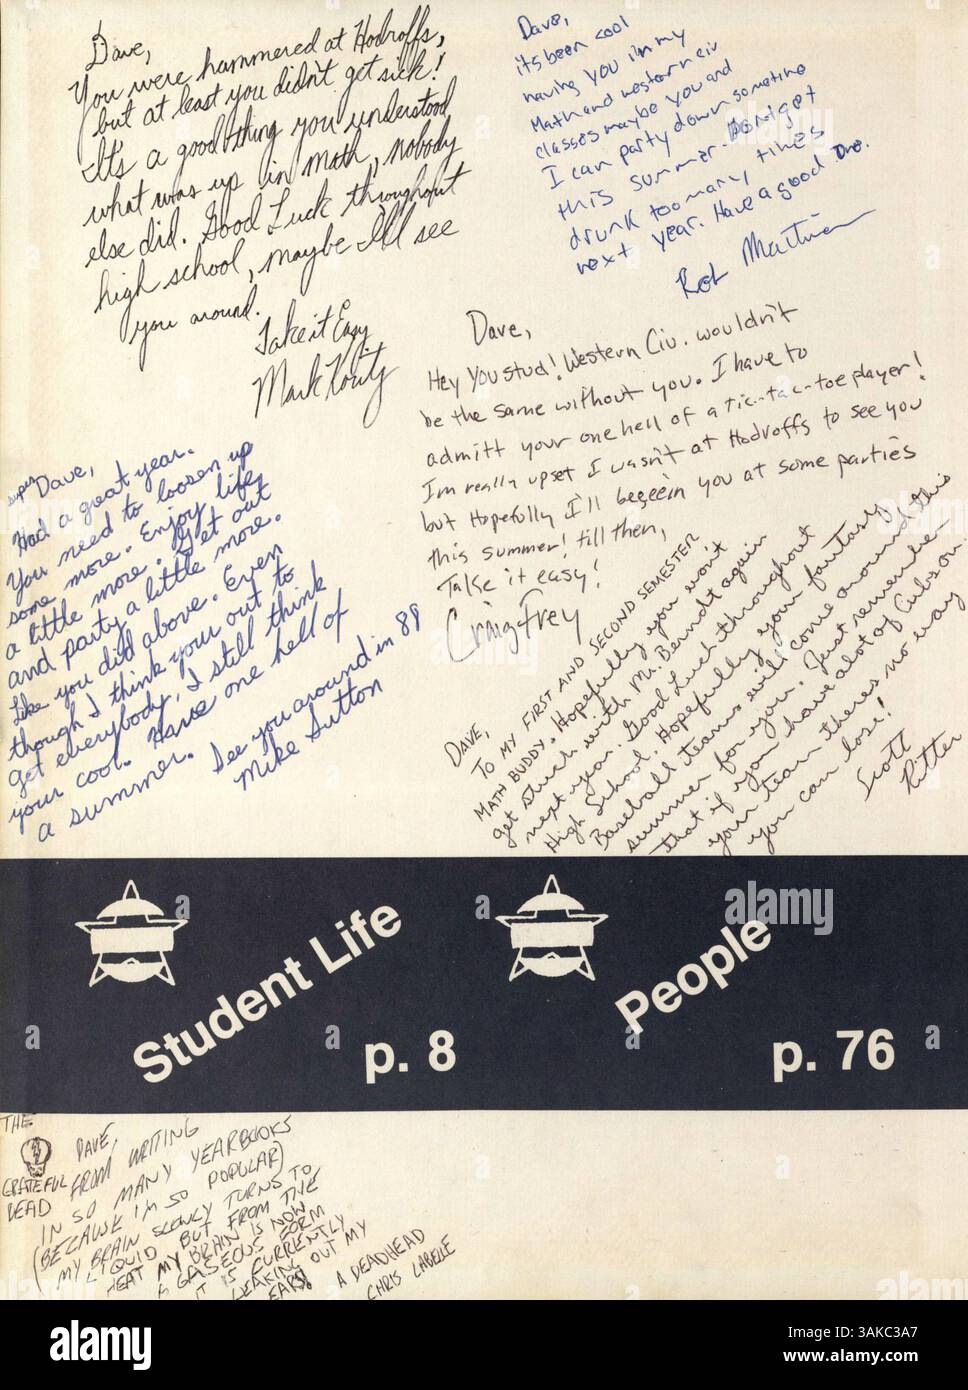 Dave,
You were hammered at Hodroffs,
but at least you didn't get sick!
It's a good thing you understood
what was up in math, nobody
else did. Good Luck throughout
high school, maybe I'll see
you around.
Take it Easy
Mark
Dave,
its been cool
having you in my
Math and western civ
classes maybe you and
I can party down sometime
this summer. Dont get
drunk too many times
next year. Have a good one.
Rob
Dave,
Hey You stud! Western Civ. wouldn't
be the same without you. I have to
admitt your one hell of a tic-tac-toe player!
I'm really upset I wasn't at Hodroffs to see you
but Hopefully I'll be you at some parties
this summer! till then,
Take it easy!
Craig Frey
super Dave,
Had a great year.
You need to loosen up
some more. Enjoy life
a little more. Get out
and party a little more.
Like you did above. Even
though I think your out to
get everybody, I still think
your cool. Have one hell of
a summer.
See you around in 88
Mike Sutton
DAVE,
TO MY FIRST AND SECOND SEMESTER
MATH BUDDY. Hopefully you won't
get stuck with Mr. Berndt again
next year. Good Luck throughout
High School. Hopefully your fantasy
Baseball teams will come around this
summer for you. Just remember
that if you have alot of Cubs on
your team theres no way
you can lose!
Scott
Ritter
Student Life
p. 8
People
p. 76
THE
GRATEFUL
DEAD
DAVE,
FROM WRITING
IN SO MANY YEARBOOKS
(BECAUSE I'M SO POPULAR)
MY BRAIN SLOWLY TURNS TO
LIQUID BUT FROM THE
HEAT MY BRAIN IS NOW
A GASEOUS FORM
IT IS CURRENTLY
LEAKING OUT MY
EARS
A DEADHEAD
CHRIS LABELLE
alamy
3AKC3A7
www.alamy.com